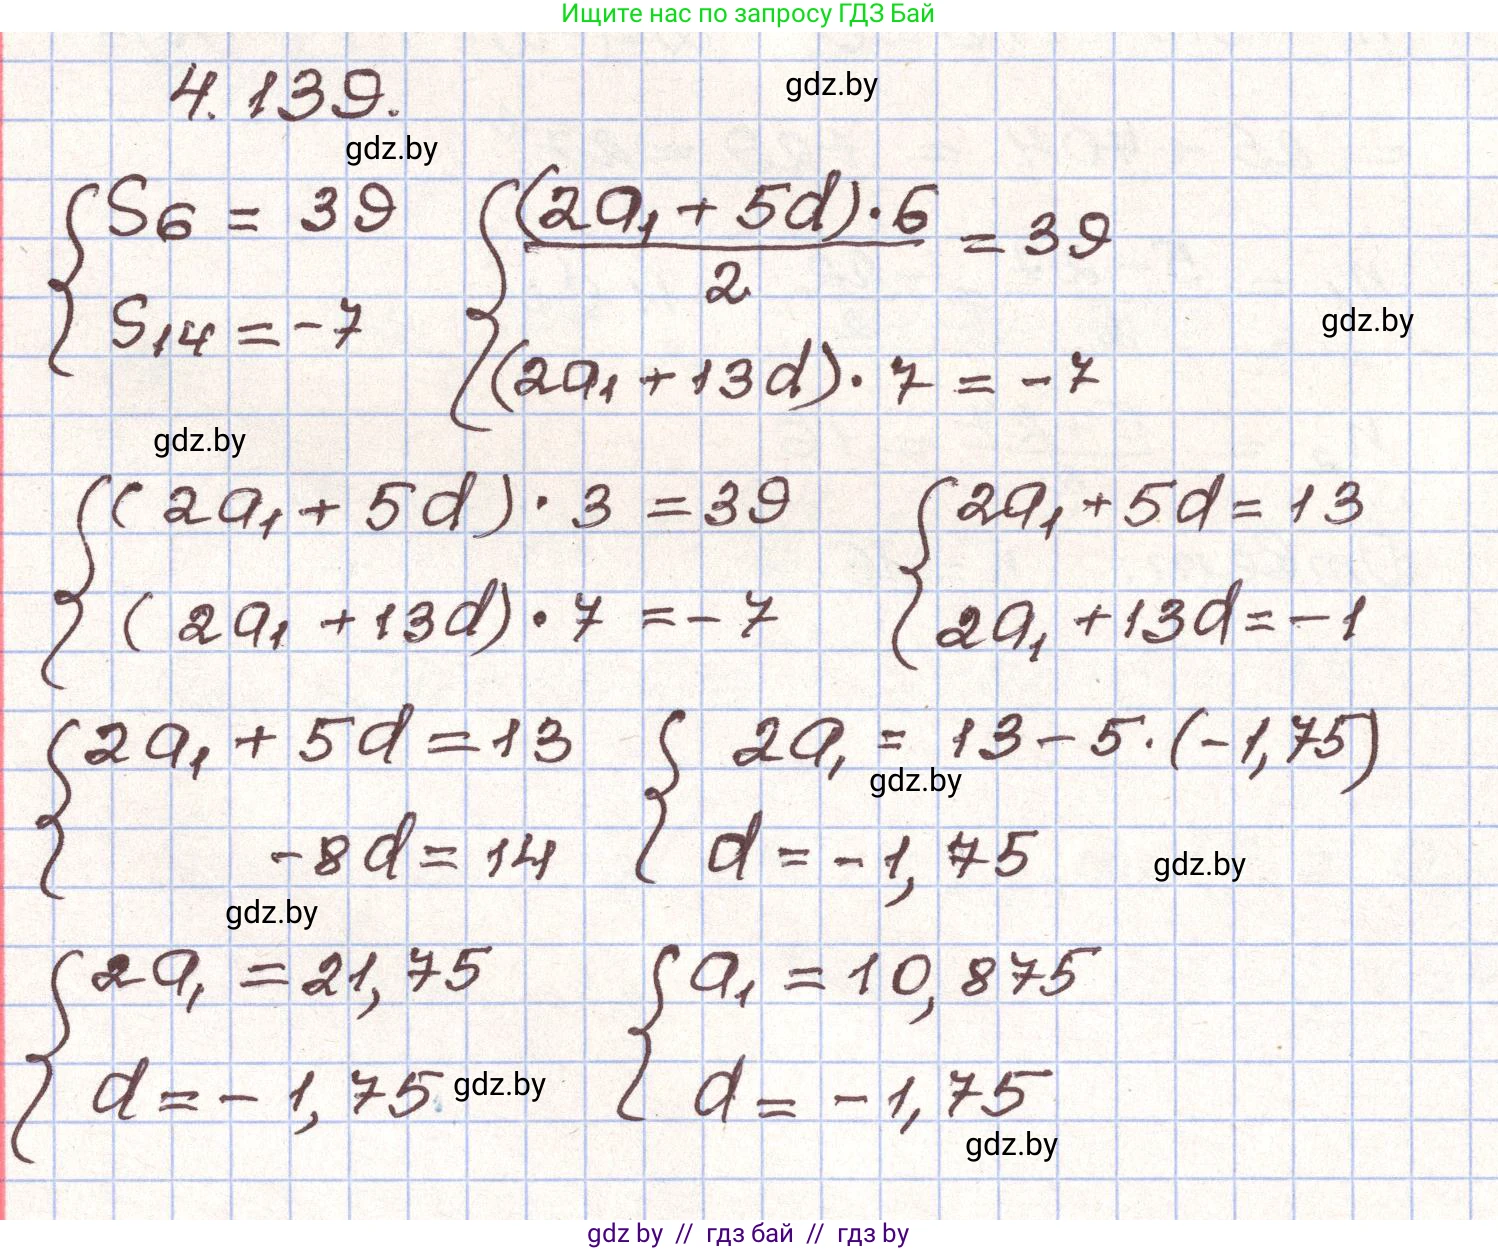 Ищите нас по запросу ГДЗ Бай
4.139.
gdz.by
gdz.by
{ S₆ = 39
S₁₄ = -7
{ (2a₁ + 5d)·6 / 2 = 39
(2a₁ + 13d)·7 = -7
gdz.by
gdz.by
{ (2a₁ + 5d)·3 = 39
(2a₁ + 13d)·7 = -7
{ 2a₁ + 5d = 13
2a₁ + 13d = -1
{ 2a₁ + 5d = 13
-8d = 14
{ 2a₁ = 13 - 5·(-1,75)
d = -1,75
gdz.by
gdz.by
gdz.by
{ 2a₁ = 21,75
d = -1,75
{ a₁ = 10,875
d = -1,75
gdz.by
gdz.by
gdz by // гдз бай // гдз by